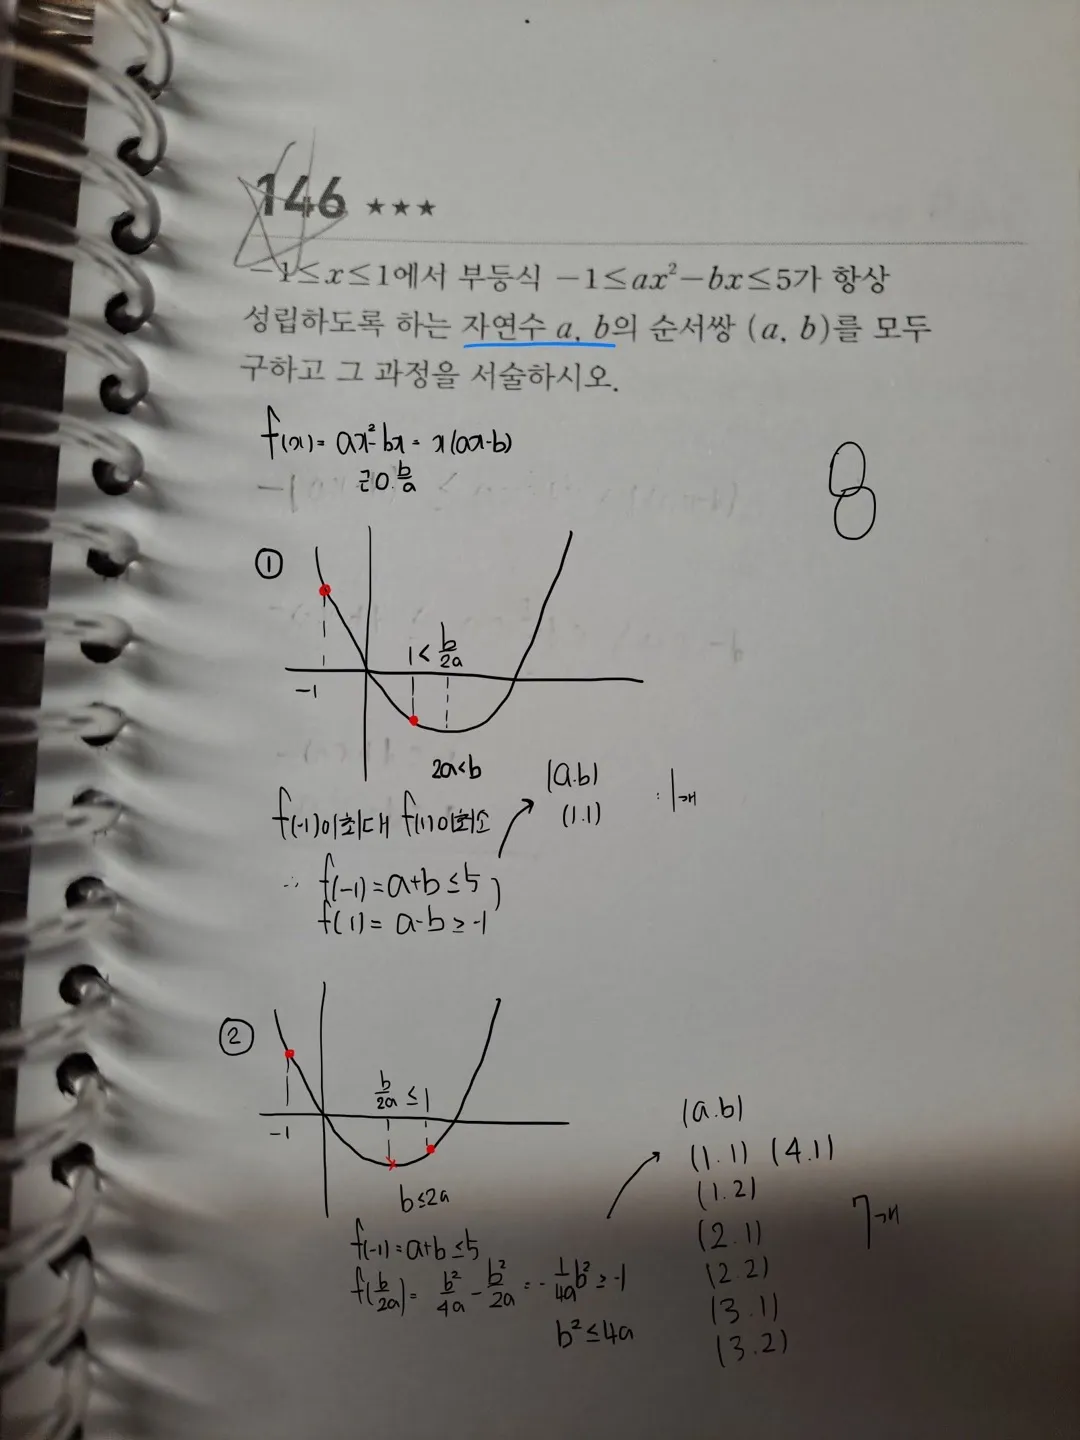 146 ★★★
-1≤x≤1에서 부등식 -1≤ax²-bx≤5가 항상
성립하도록 하는 자연수 a, b의 순서쌍 (a, b)를 모두
구하고 그 과정을 서술하시오.
f(x)= ax²-bx = x(ax-b)
근 0. b/a
8
①
1< b/2a
-1
2a<b
f(-1)이 최대 f(1)이 최소
(a.b)
(1.1)
: 1개
∴ f(-1)=a+b≤5
f(1)= a-b≥-1
②
b/2a ≤ 1
-1
b≤2a
f(-1)=a+b≤5
f(b/2a)= b²/4a - b²/2a = -1/4a b² ≥-1
b²≤4a
(a.b)
(1.1) (4.1)
(1.2)
(2.1)
(2.2)
(3.1)
(3.2)
7개